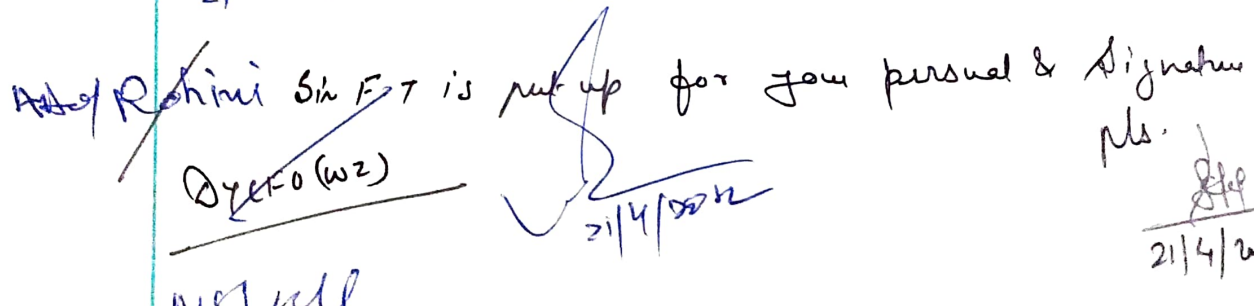 Rohini Sir F.T is put up for your persual & Signature
pls.
Dy CFO (WZ)
21/4/2022
21/4/2